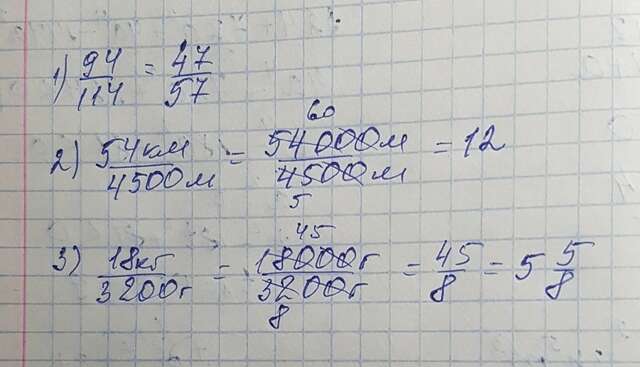 1) 94/114 = 47/57
60
2) 54км/4500м = 54000м/4500м = 12
5
45
3) 18кг/3200г = 18000г/3200г = 45/8 = 5 5/8
8